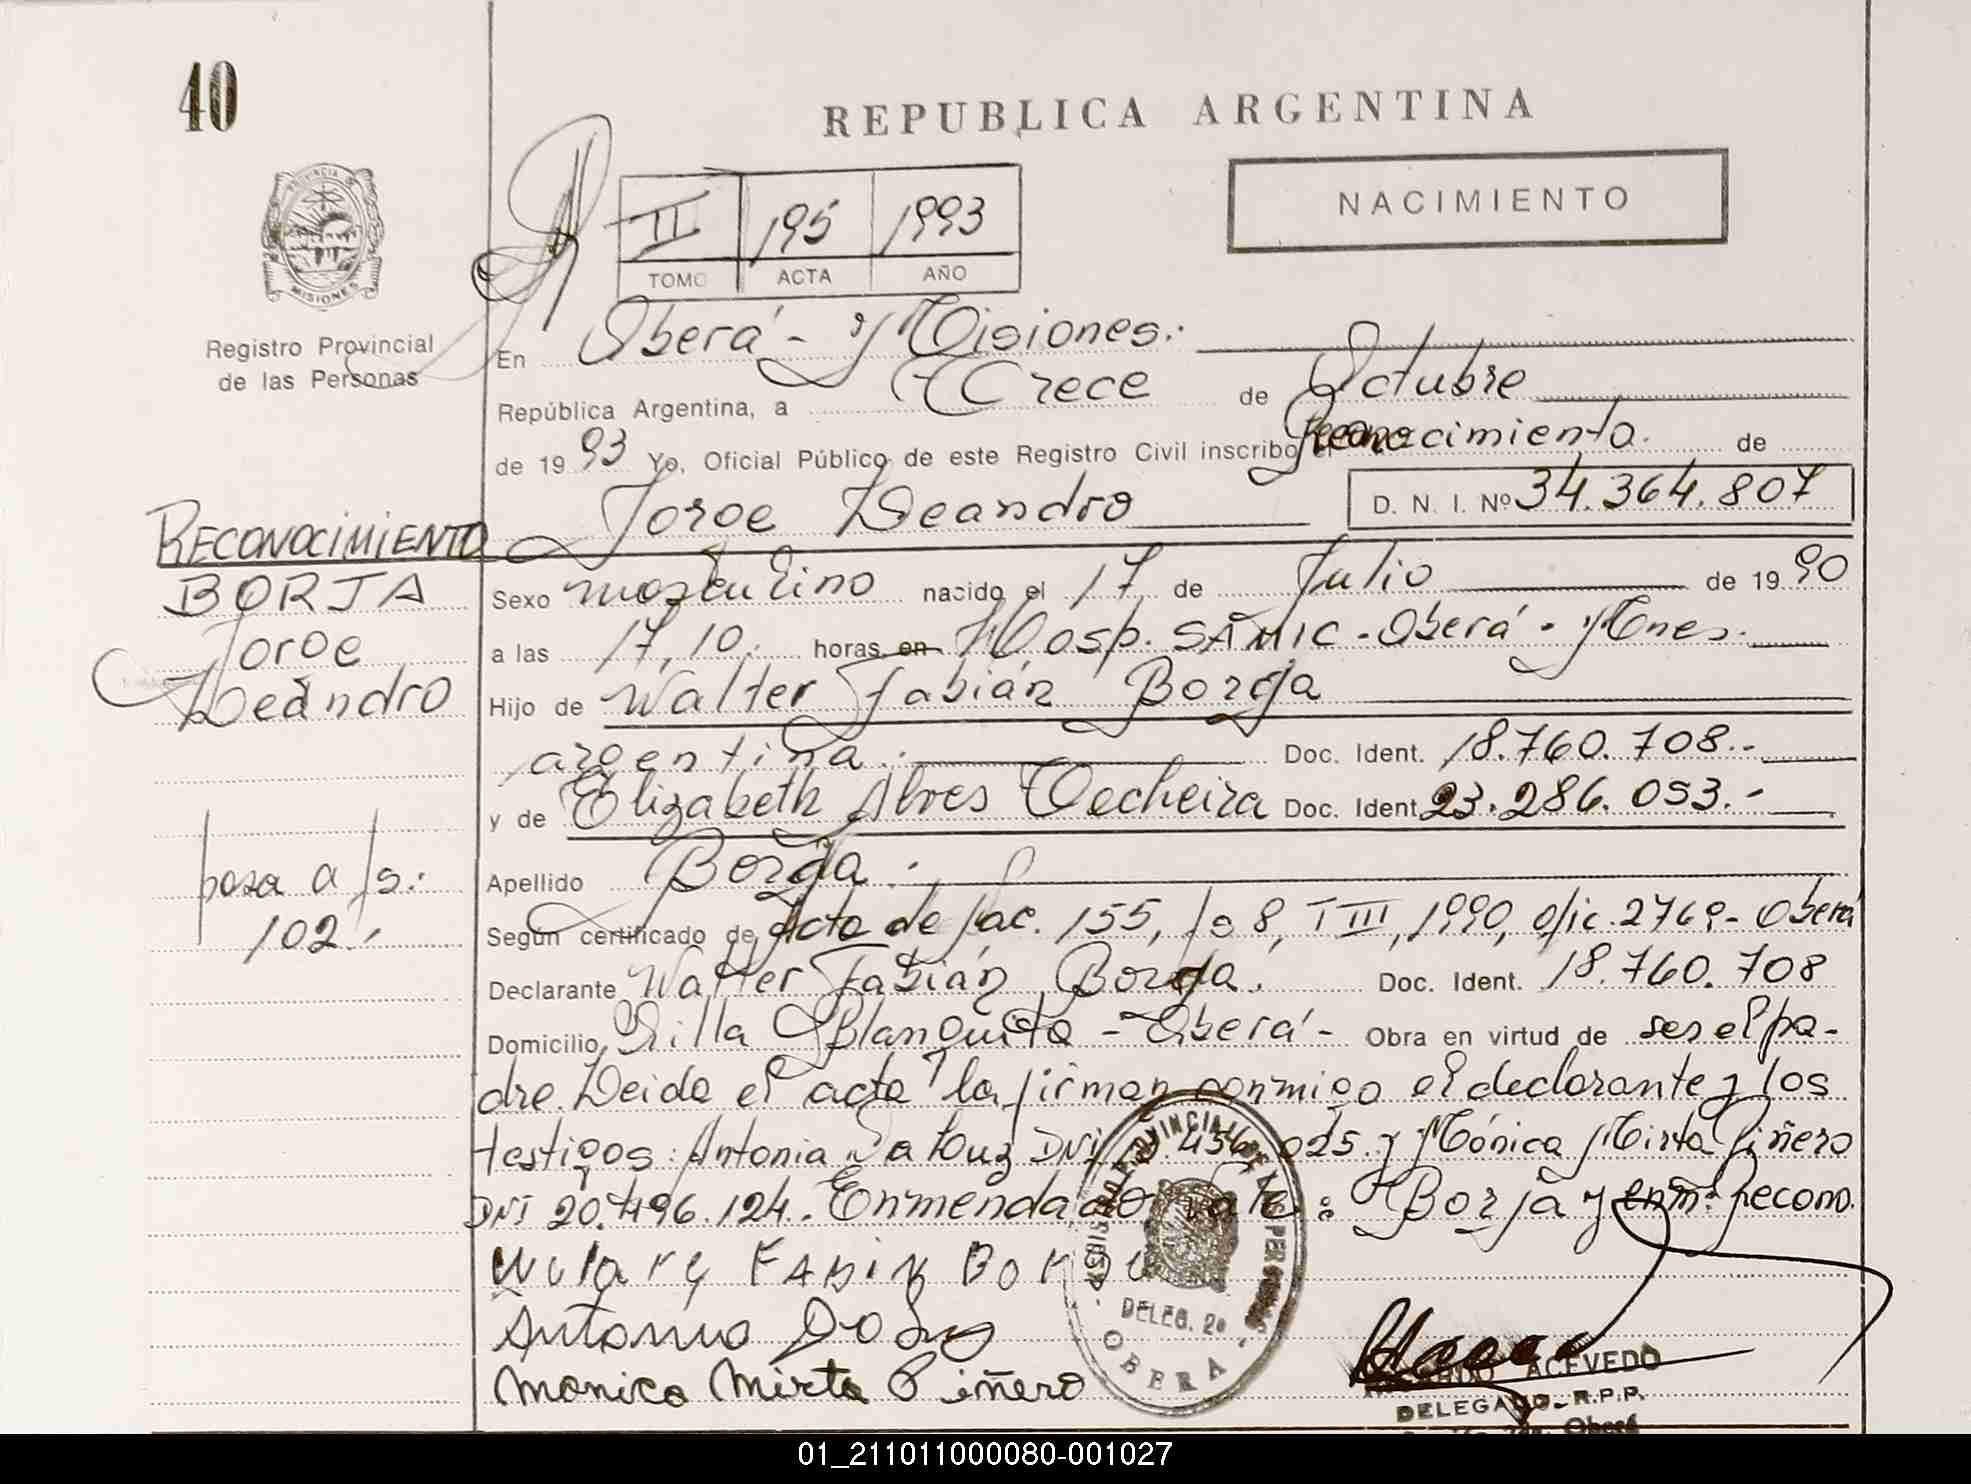 40
REPUBLICA ARGENTINA
NACIMIENTO
II 195 1993
TOMO ACTA AÑO
PROVINCIA DE
MISIONES
Registro Provincial
de las Personas
En Oberá - Misiones.
República Argentina, a Trece de Octubre
de 19 93 Yo, Oficial Público de este Registro Civil inscribo el Reconocimiento. de
Jorge Leandro D. N. I. Nº 34.364.807
RECONOCIMIENTO
BORJA
Jorge
Leandro
Sexo masculino nacido el 17 de Julio de 19 90
a las 17,10. horas en Hosp. SAMIC - Oberá - Mnes.
Hijo de Walter Fabián Borja
argentina. Doc. Ident. 18.760.708.-
y de Elizabeth Alves Techeira Doc. Ident. 23.286.053.-
pasa a fs:
102.-
Apellido Borja.
Según certificado de Acta de Nac. 155, fo 8, T III, 1990, ofic. 2769- Oberá
Declarante Walter Fabián Borja. Doc. Ident. 18.760.708
Domicilio Villa Blanquita - Oberá - Obra en virtud de ser el pa-
dre. Leida el acta la firman conmigo el declarante y los
testigos: Antonia Da Luz DNI 456.025. y Mónica Mirta Piñero
DNI 20.496.124. Enmendado vale: Borja y enm: Recono.
FABIAN BORJA
Antonia Da Luz
Monica Mirta Piñero
REGISTRO PROVINCIAL DE LAS PERSONAS
DELEG. 2ª
OBERA
ACEVEDO
DELEGADO R.P.P.
Oberá
01_211011000080-001027